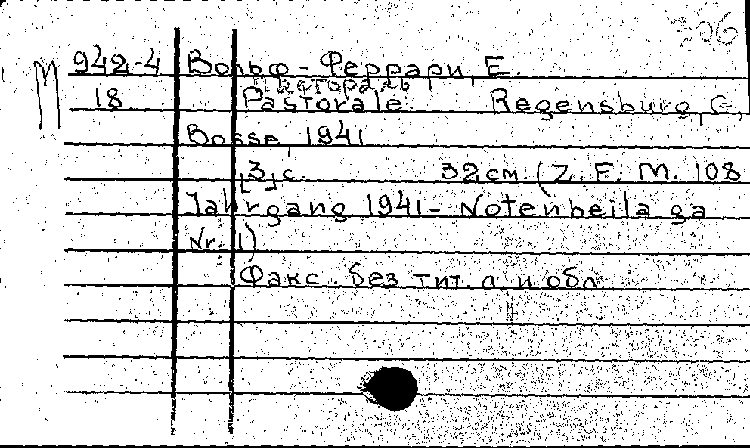 306
М 942-4 Вольф-Феррари, Е.
Пастораль
18 Pastorale. Regensburg, G.
Bosse, 1941.
[3] с. 32см. (Z. F. M. 108
Jahrgang 1941 - Notenbeila ga
Nr. 1)
Факс. без тит. л. и обл.